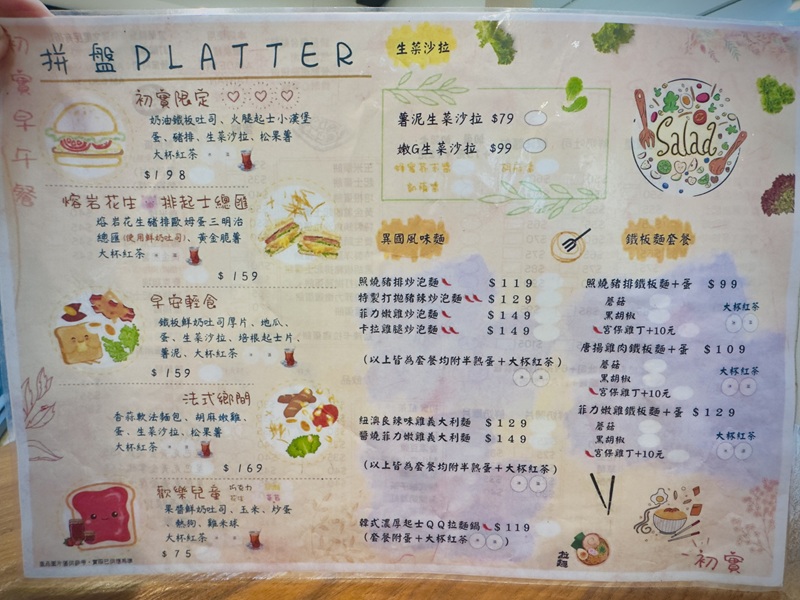 初實早午餐
拼盤PLATTER
初實限定
奶油鐵板吐司、火腿起士小漢堡
蛋、豬排、生菜沙拉、松果薯
大杯紅茶
$198
熔岩花生 排起士總匯
熔岩花生豬排歐姆蛋三明治
總匯(使用鮮奶吐司)、黃金脆薯
大杯紅茶
$159
早安輕食
鐵板鮮奶吐司厚片、地瓜、
蛋、生菜沙拉、培根起士片、
薯泥、大杯紅茶
$159
法式鄉間
香蒜軟法麵包、胡麻嫩雞、
蛋、生菜沙拉、松果薯
大杯紅茶
$169
歡樂兒童
巧克力 花生 草莓
果醬鮮奶吐司、玉米、炒蛋
、熱狗、雞米球
大杯紅茶
$75
生菜沙拉
薯泥生菜沙拉 $79
嫩G生菜沙拉 $99
Salad
異國風味麵
照燒豬排炒泡麵 $119
特製打拋豬辣炒泡麵 $129
菲力嫩雞炒泡麵 $149
卡拉雞腿炒泡麵 $149
(以上皆為套餐均附半熟蛋+大杯紅茶)
紐澳良辣味雞義大利麵 $129
醬燒菲力嫩雞義大利麵 $149
(以上皆為套餐均附半熟蛋+大杯紅茶)
韓式濃厚起士QQ拉麵鍋 $119
(套餐附蛋+大杯紅茶)
拉麵
鐵板麵套餐
照燒豬排鐵板麵+蛋 $99
蘑菇
黑胡椒
宮保雞丁+10元
大杯紅茶
唐揚雞肉鐵板麵+蛋 $109
蘑菇
黑胡椒
宮保雞丁+10元
大杯紅茶
菲力嫩雞鐵板麵+蛋 $129
蘑菇
黑胡椒
宮保雞丁+10元
大杯紅茶
初實